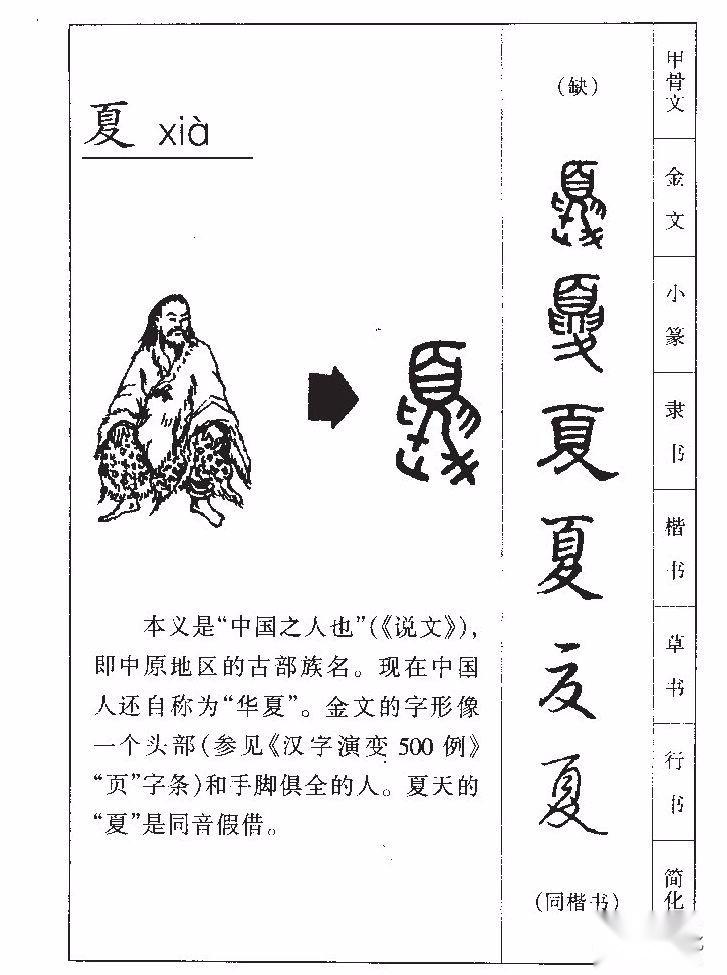 夏 xià
本义是“中国之人也”(《说文》),
即中原地区的古部族名。现在中国
人还自称为“华夏”。金文的字形像
一个头部(参见《汉字演变 500 例》
“页”字条)和手脚俱全的人。夏天的
“夏”是同音假借。
(缺)
夏
夏
夏
夏
夏
夏
(同楷书)
甲骨文
金文
小篆
隶书
楷书
草书
行书
简化